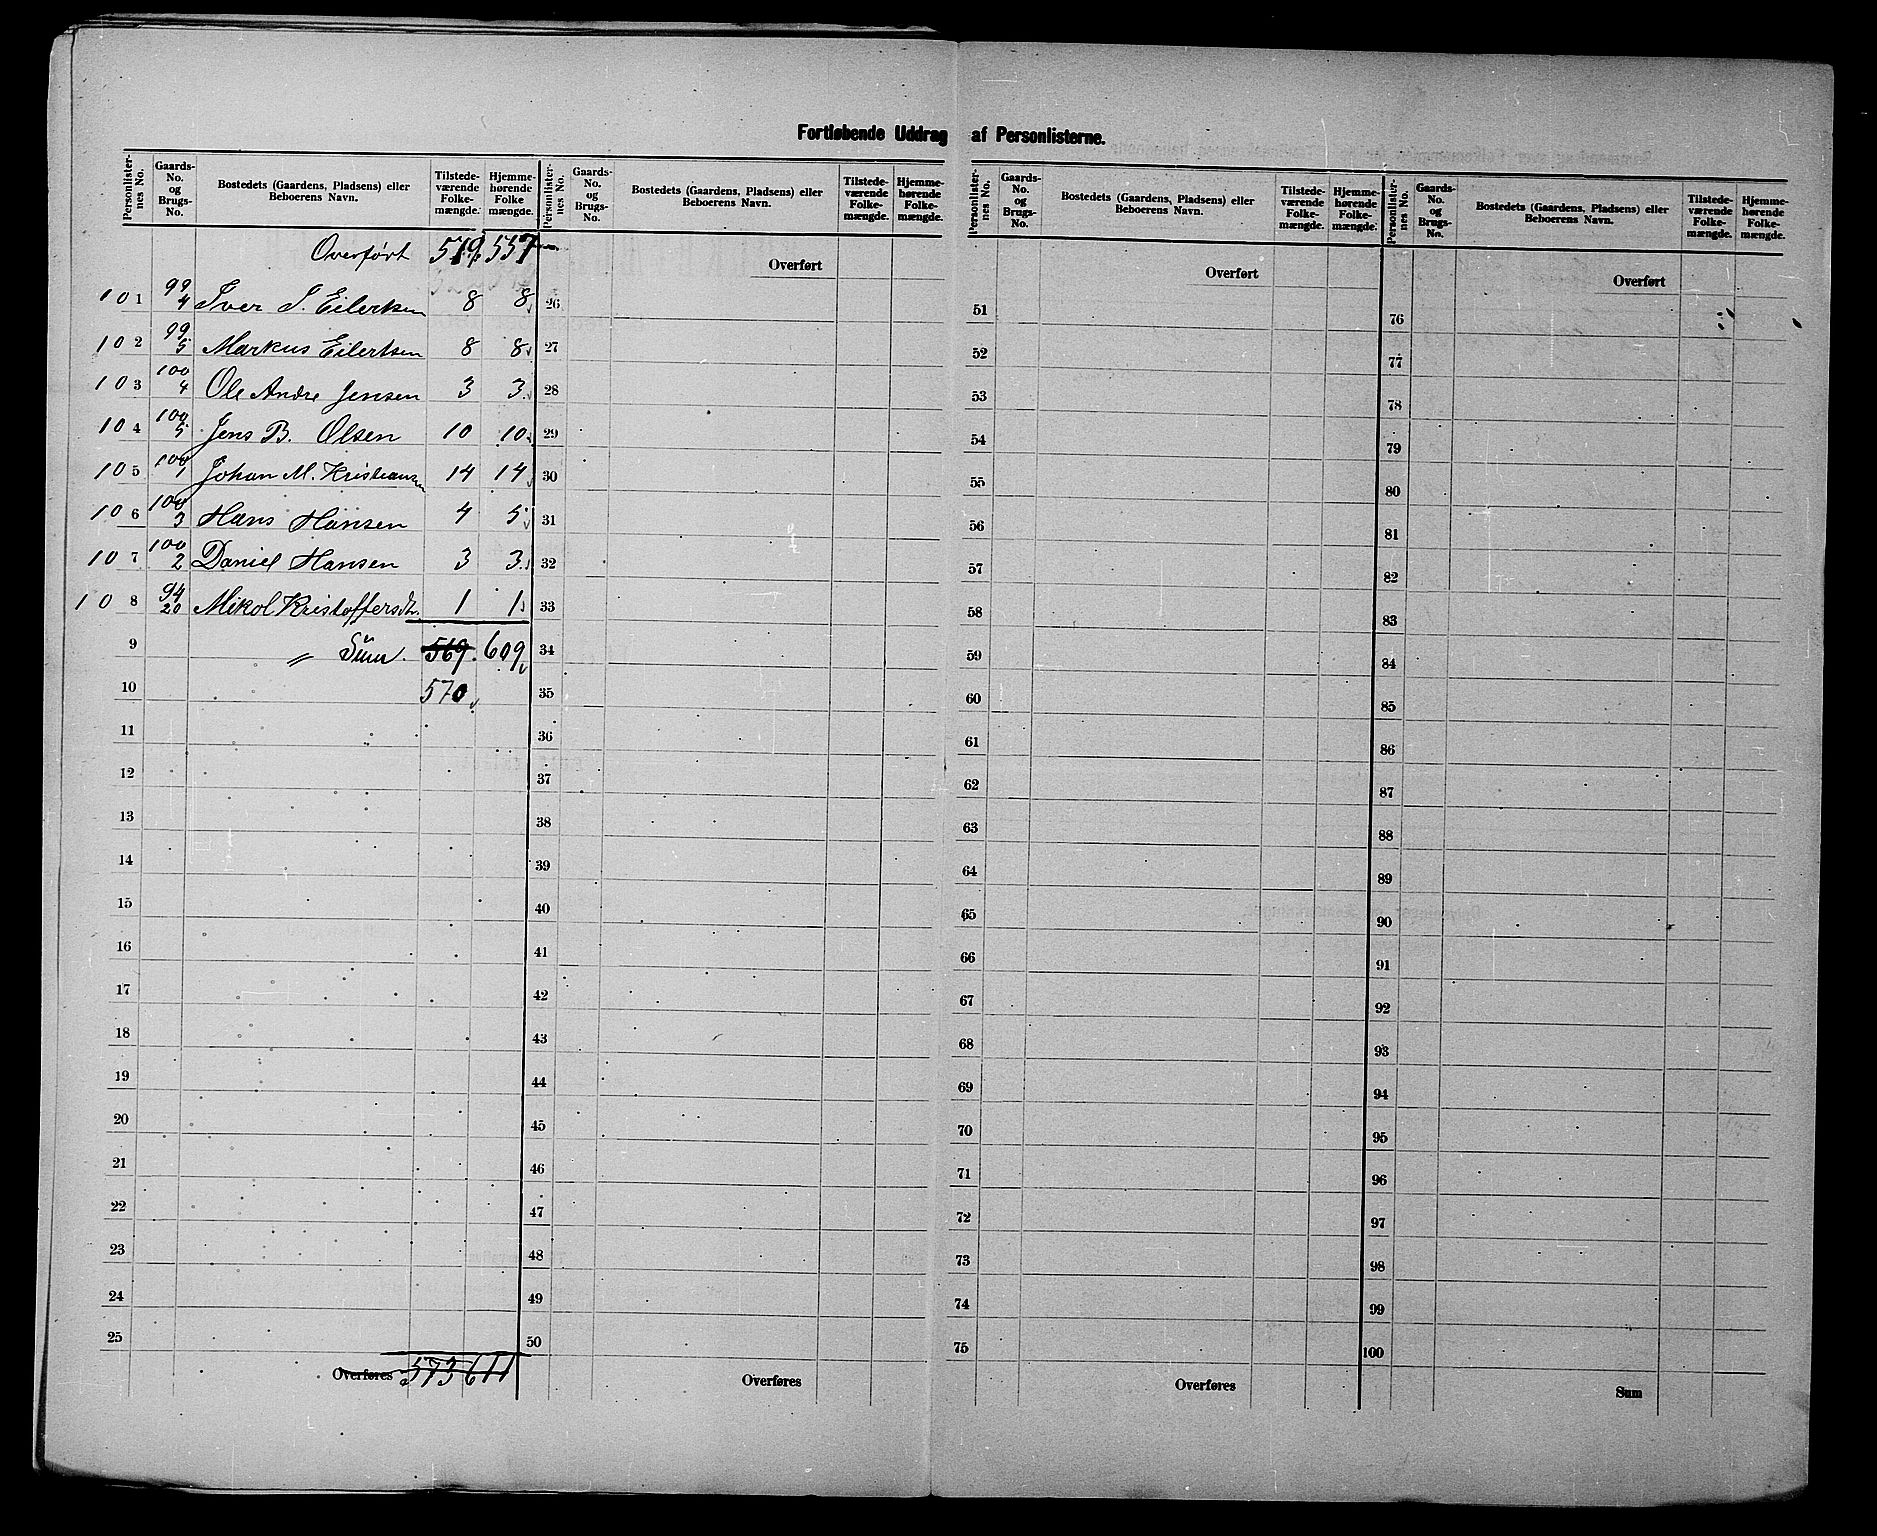 Fortløbende Uddrag af Personlisterne.
Personlisternes No. | Gaards-No. og Brugs-No. | Bostedets (Gaardens, Pladsens) eller Beboerens Navn. | Tilstedeværende Folkemængde. | Hjemmehørende Folkemængde.
Overført 519 557
101 99/4 Iver S. Eilertsen 8 8
102 99/5 Markus Eilertsen 8 8
103 100/4 Ole Andre Jensen 3 3
104 100/5 Jens B. Olsen 10 10
105 100/1 Johan M. Kristiansen 14 14
106 100/3 Hans Hansen 4 5
107 100/2 Daniel Hansen 3 3
108 94/20 Mikol Kristoffersdtr. 1 1
9 〃 Sum. 569. 609
10 570
11
12
13
14
15
16
17
18
19
20
21
22
23
24
25
Overføres 573 611
Personlisternes No. | Gaards-No. og Brugs-No. | Bostedets (Gaardens, Pladsens) eller Beboerens Navn. | Tilstedeværende Folkemængde. | Hjemmehørende Folkemængde.
Overført
26
27
28
29
30
31
32
33
34
35
36
37
38
39
40
41
42
43
44
45
46
47
48
49
50
Overføres
Personlisternes No. | Gaards-No. og Brugs-No. | Bostedets (Gaardens, Pladsens) eller Beboerens Navn. | Tilstedeværende Folkemængde. | Hjemmehørende Folkemængde.
Overført
51
52
53
54
55
56
57
58
59
60
61
62
63
64
65
66
67
68
69
70
71
72
73
74
75
Overføres
Personlisternes No. | Gaards-No. og Brugs-No. | Bostedets (Gaardens, Pladsens) eller Beboerens Navn. | Tilstedeværende Folkemængde. | Hjemmehørende Folkemængde.
Overført
76
77
78
79
80
81
82
83
84
85
86
87
88
89
90
91
92
93
94
95
96
97
98
99
100
Sum